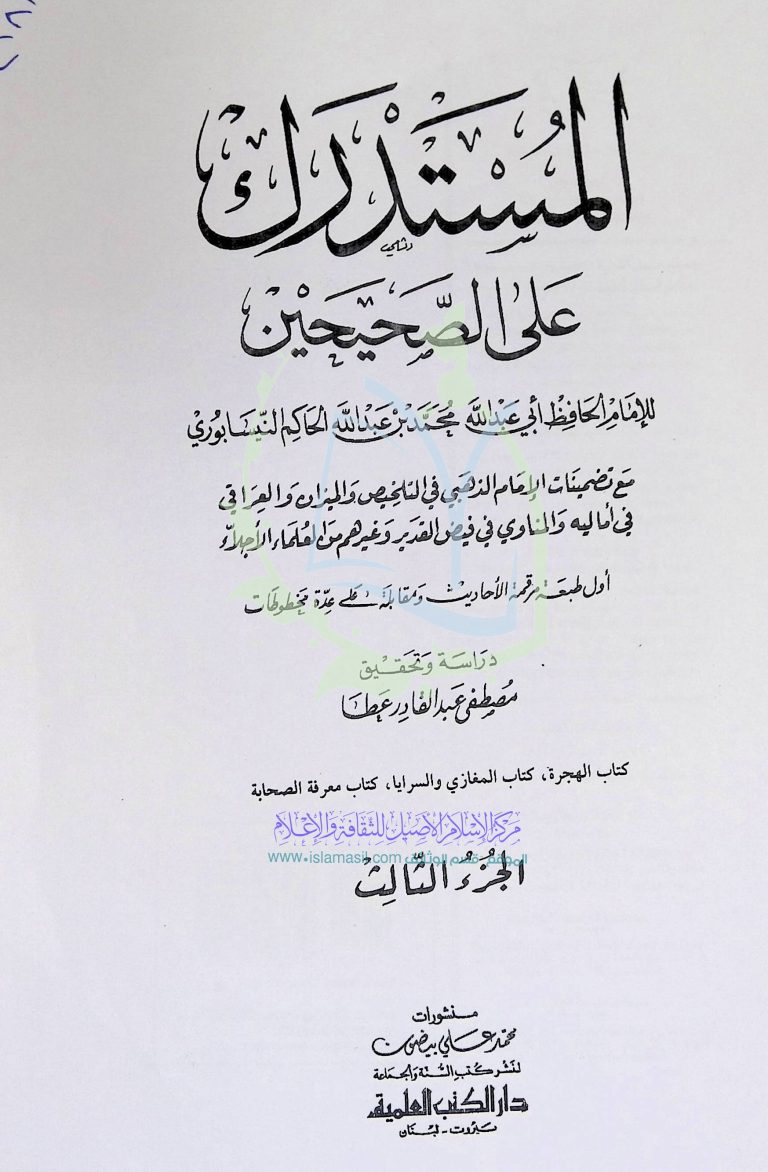 المُسْتَدْرَك
عَلَى الصَّحِيحَيْن
للإمَام الحَافِظ أبي عَبْدالله مُحَمَّد بْن عَبْدالله الحَاكِم النَّيسَابُوري
مَع تضمينات الإمَام الذهَبي في التلخيص والميزان والعِراقي
في أماليه والمناوي في فيض القدير وغيرهم من العُلمَاء الأجلاّء
أول طبعَة مرقمة الأحاديث ومقابلة على عدّة مخطوطات
دراسَة وتحقيق
مُصطفى عبد القادر عَطا
كتاب الهجرة، كتاب المغازي والسرايا، كتاب معرفة الصحابة
مركز الإسلام الأصيل للثقافة والإعلام
الموقع قسم الوثائق www.islamasil.com
الجُزءُ الثّالِث
منشورات
محمد علي بيضون
لنشر كتب السُّنّة والجماعة
دار الكتب العلمية
بيروت - لبنان